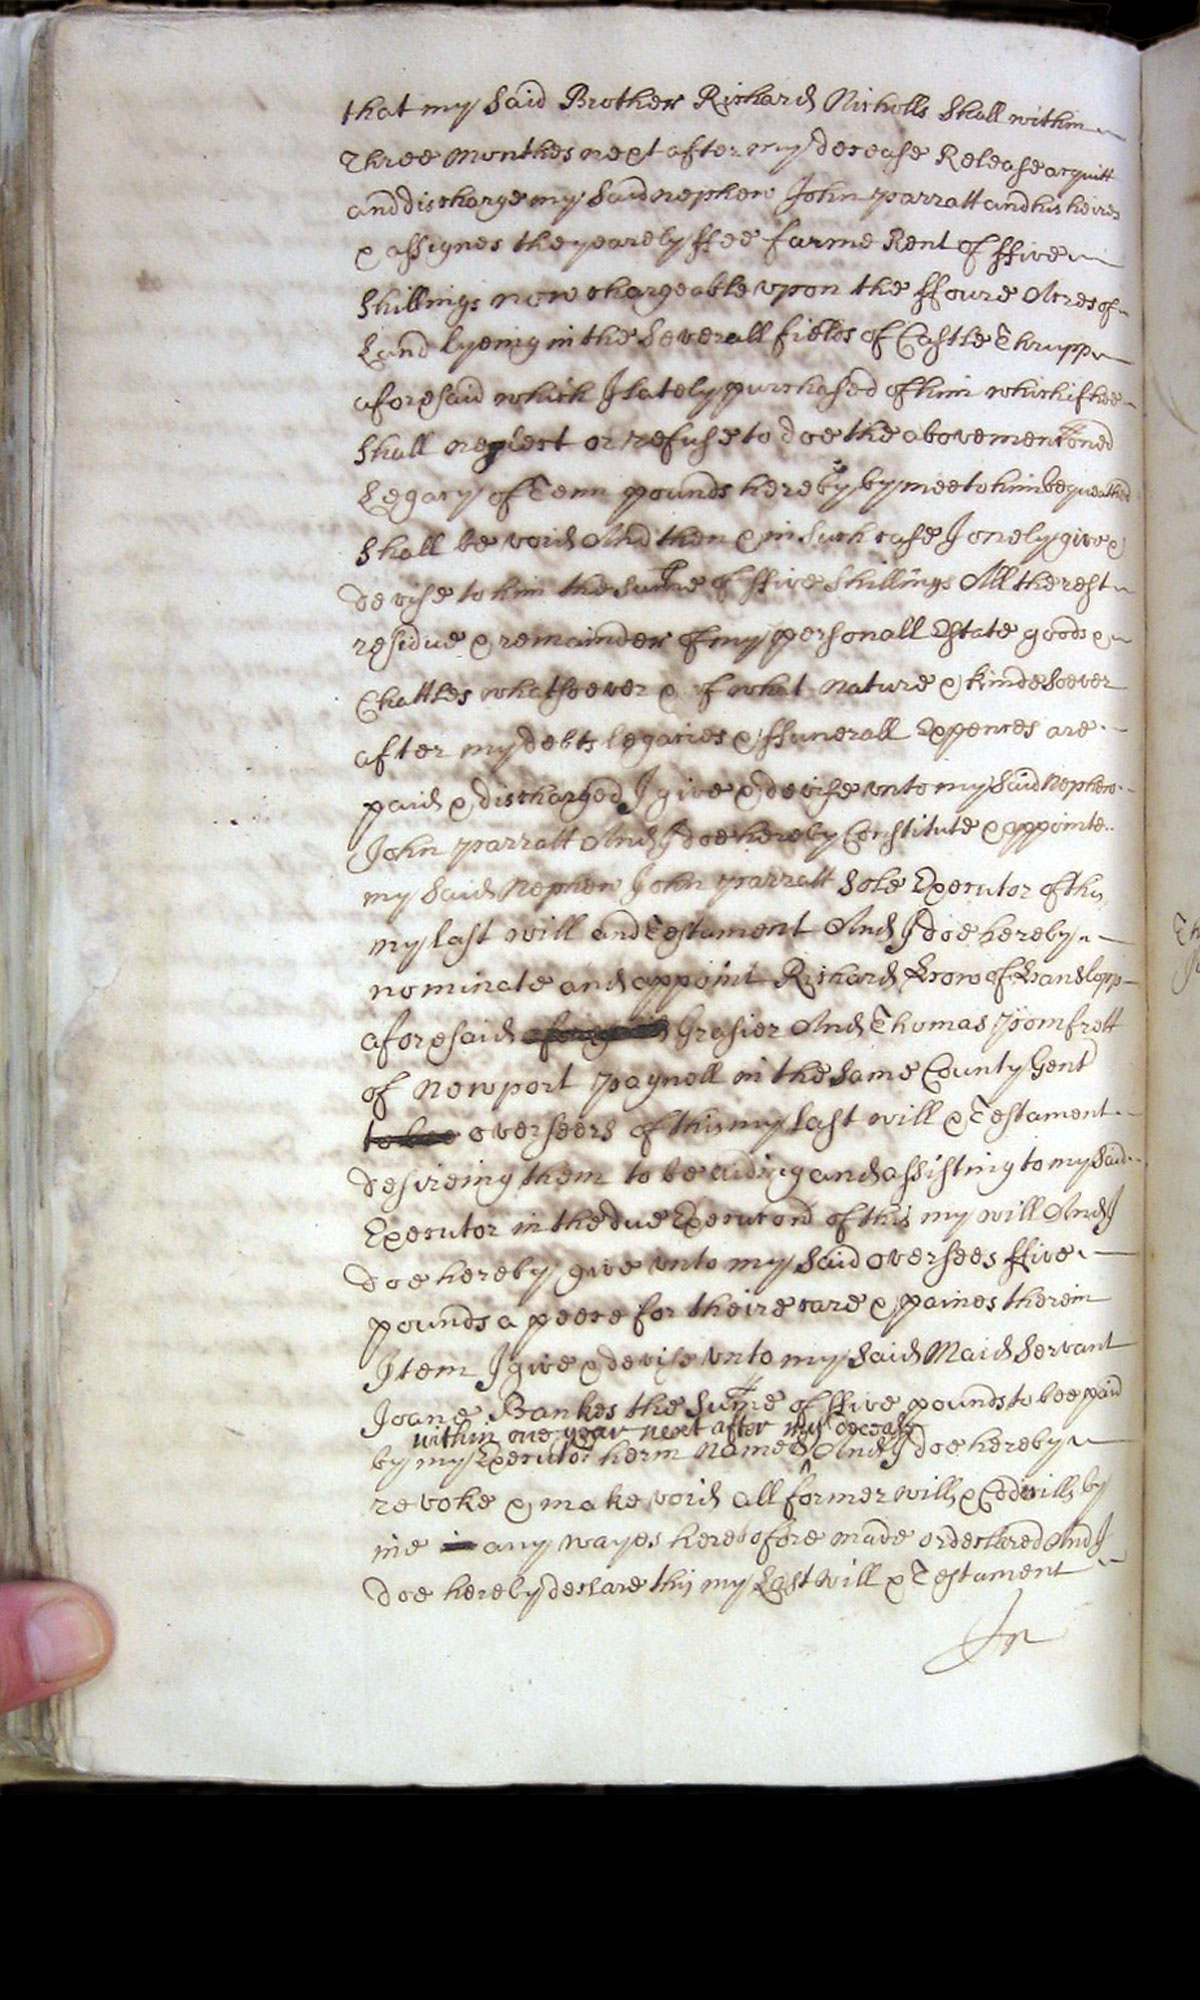 that my Said Brother Richard Nicholls Shall within
Three Monthes next after my decease Release acquitt
and discharge my Said nephew John Parratt and his heires
& assignes the yearely ffee farme Rent of ffive
Shillings now chargeable upon the ffoure Acres of
Land lyeing in the Severall fields of Castle Thrupp
aforesaid which I lately purchased of him which if hee
Shall neglect or refuse to doe the abovementioned
Legacy of Tenn pounds hereby by mee to him bequeathed
Shall be void And then & in Such case I onely give &
devise to him the Sume of ffive Shillings All the rest
residue & remainder of my personall Estate goods &
Chattles whatsoever & of what nature & kinde soever
after my debts legacies & ffunerall Expences are
paid & discharged I give & devise unto my Said Nephew
John Parratt And I doe hereby Constitute & appointe
my Said Nephew John Parratt Sole Executor of this
my last will and Testament And I doe hereby
nominate and appoint Richard Lrow of Handlopp
aforesaid Grasier And Thomas Pomfrett
of Newport Pagnell in the Same County Gent
to bee overseers of this my last will & Testament
desireing them to be aiding and assisting to my Said
Executor in the due Execucon of this my will And I
doe hereby give unto my Said oversees ffive
pounds a peece for theire care & paines therein
Item I give & devise unto my Said Maid Servant
Joane Bankes the Sume of ffive pounds to bee paid
within one year next after my decease
by my Executor herin Named And I doe hereby
revoke & make void all former wills & Codicills by
me in any wayes heretofore made or declared And I
doe hereby declare this my Last Will & Testament
In